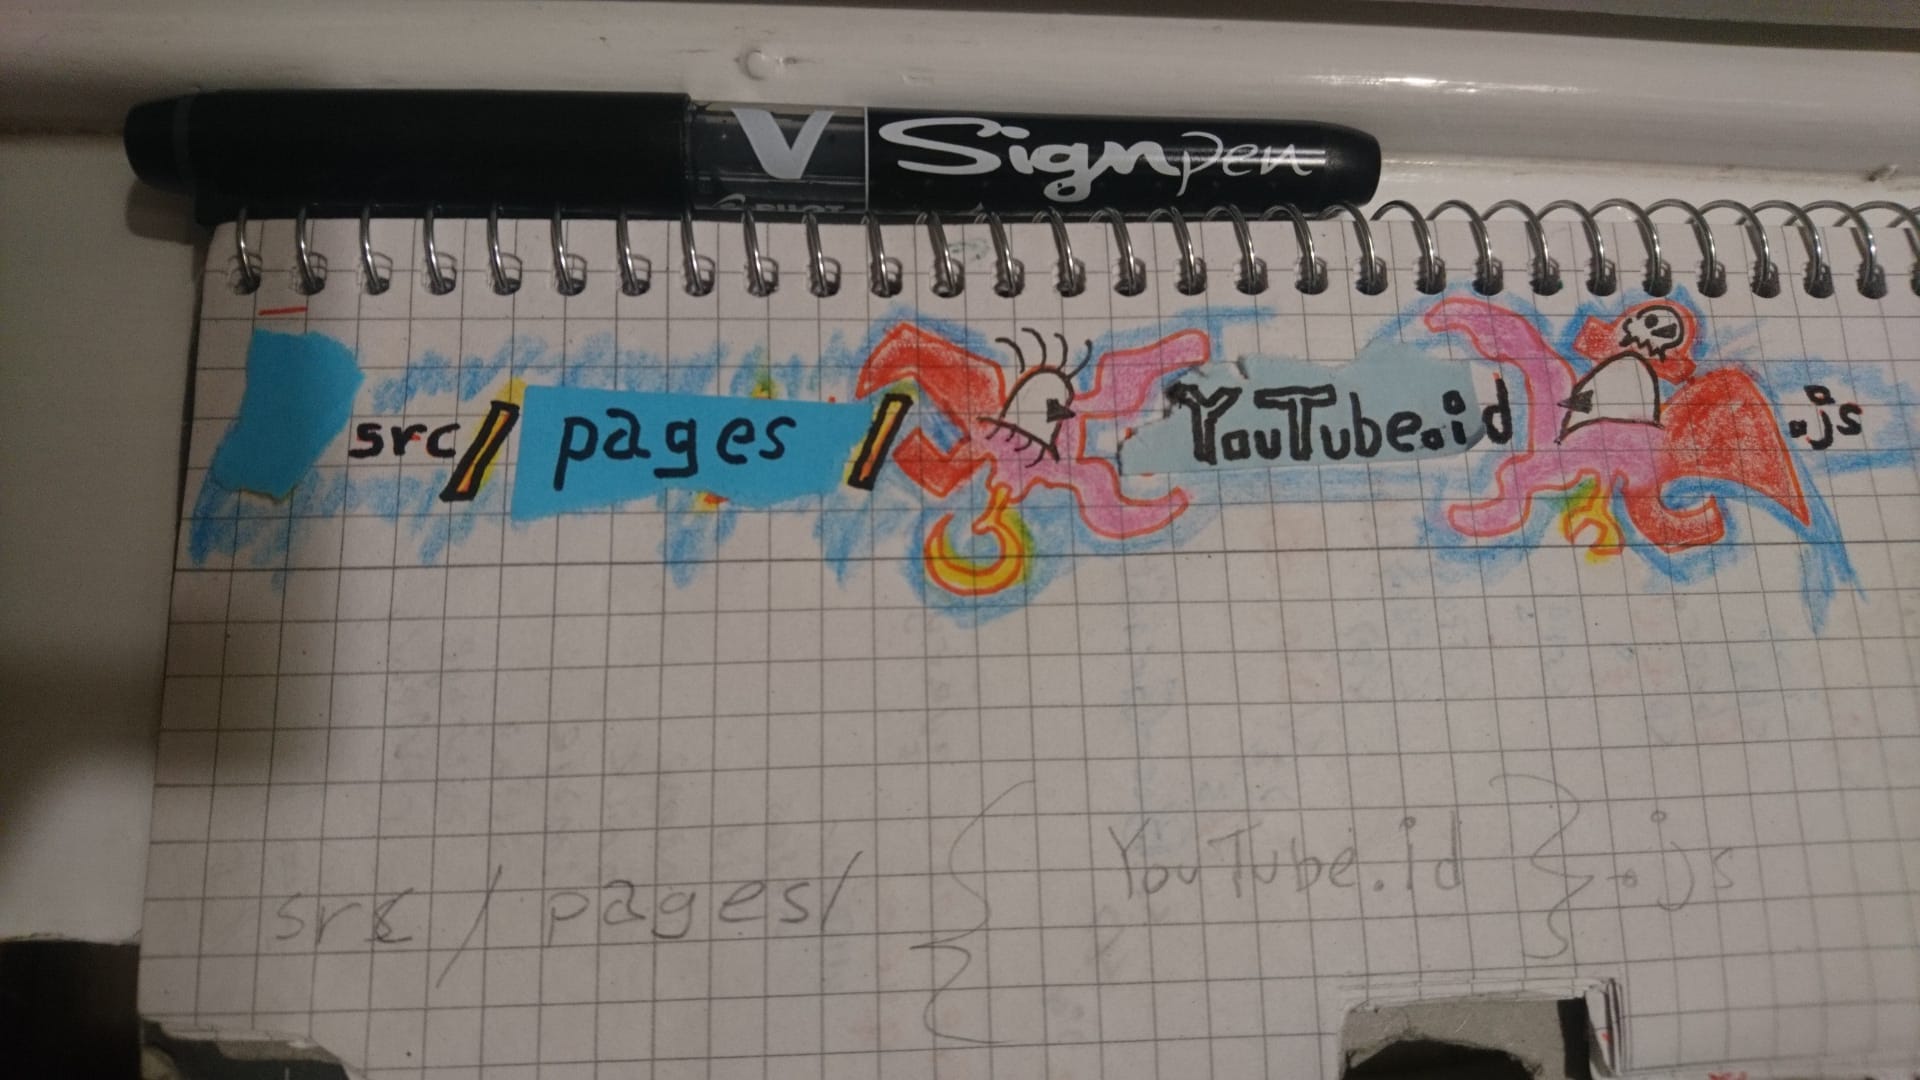 V Signpen
PILOT
src/pages/{YouTube.id}.js
src/pages/{YouTube.id}.js